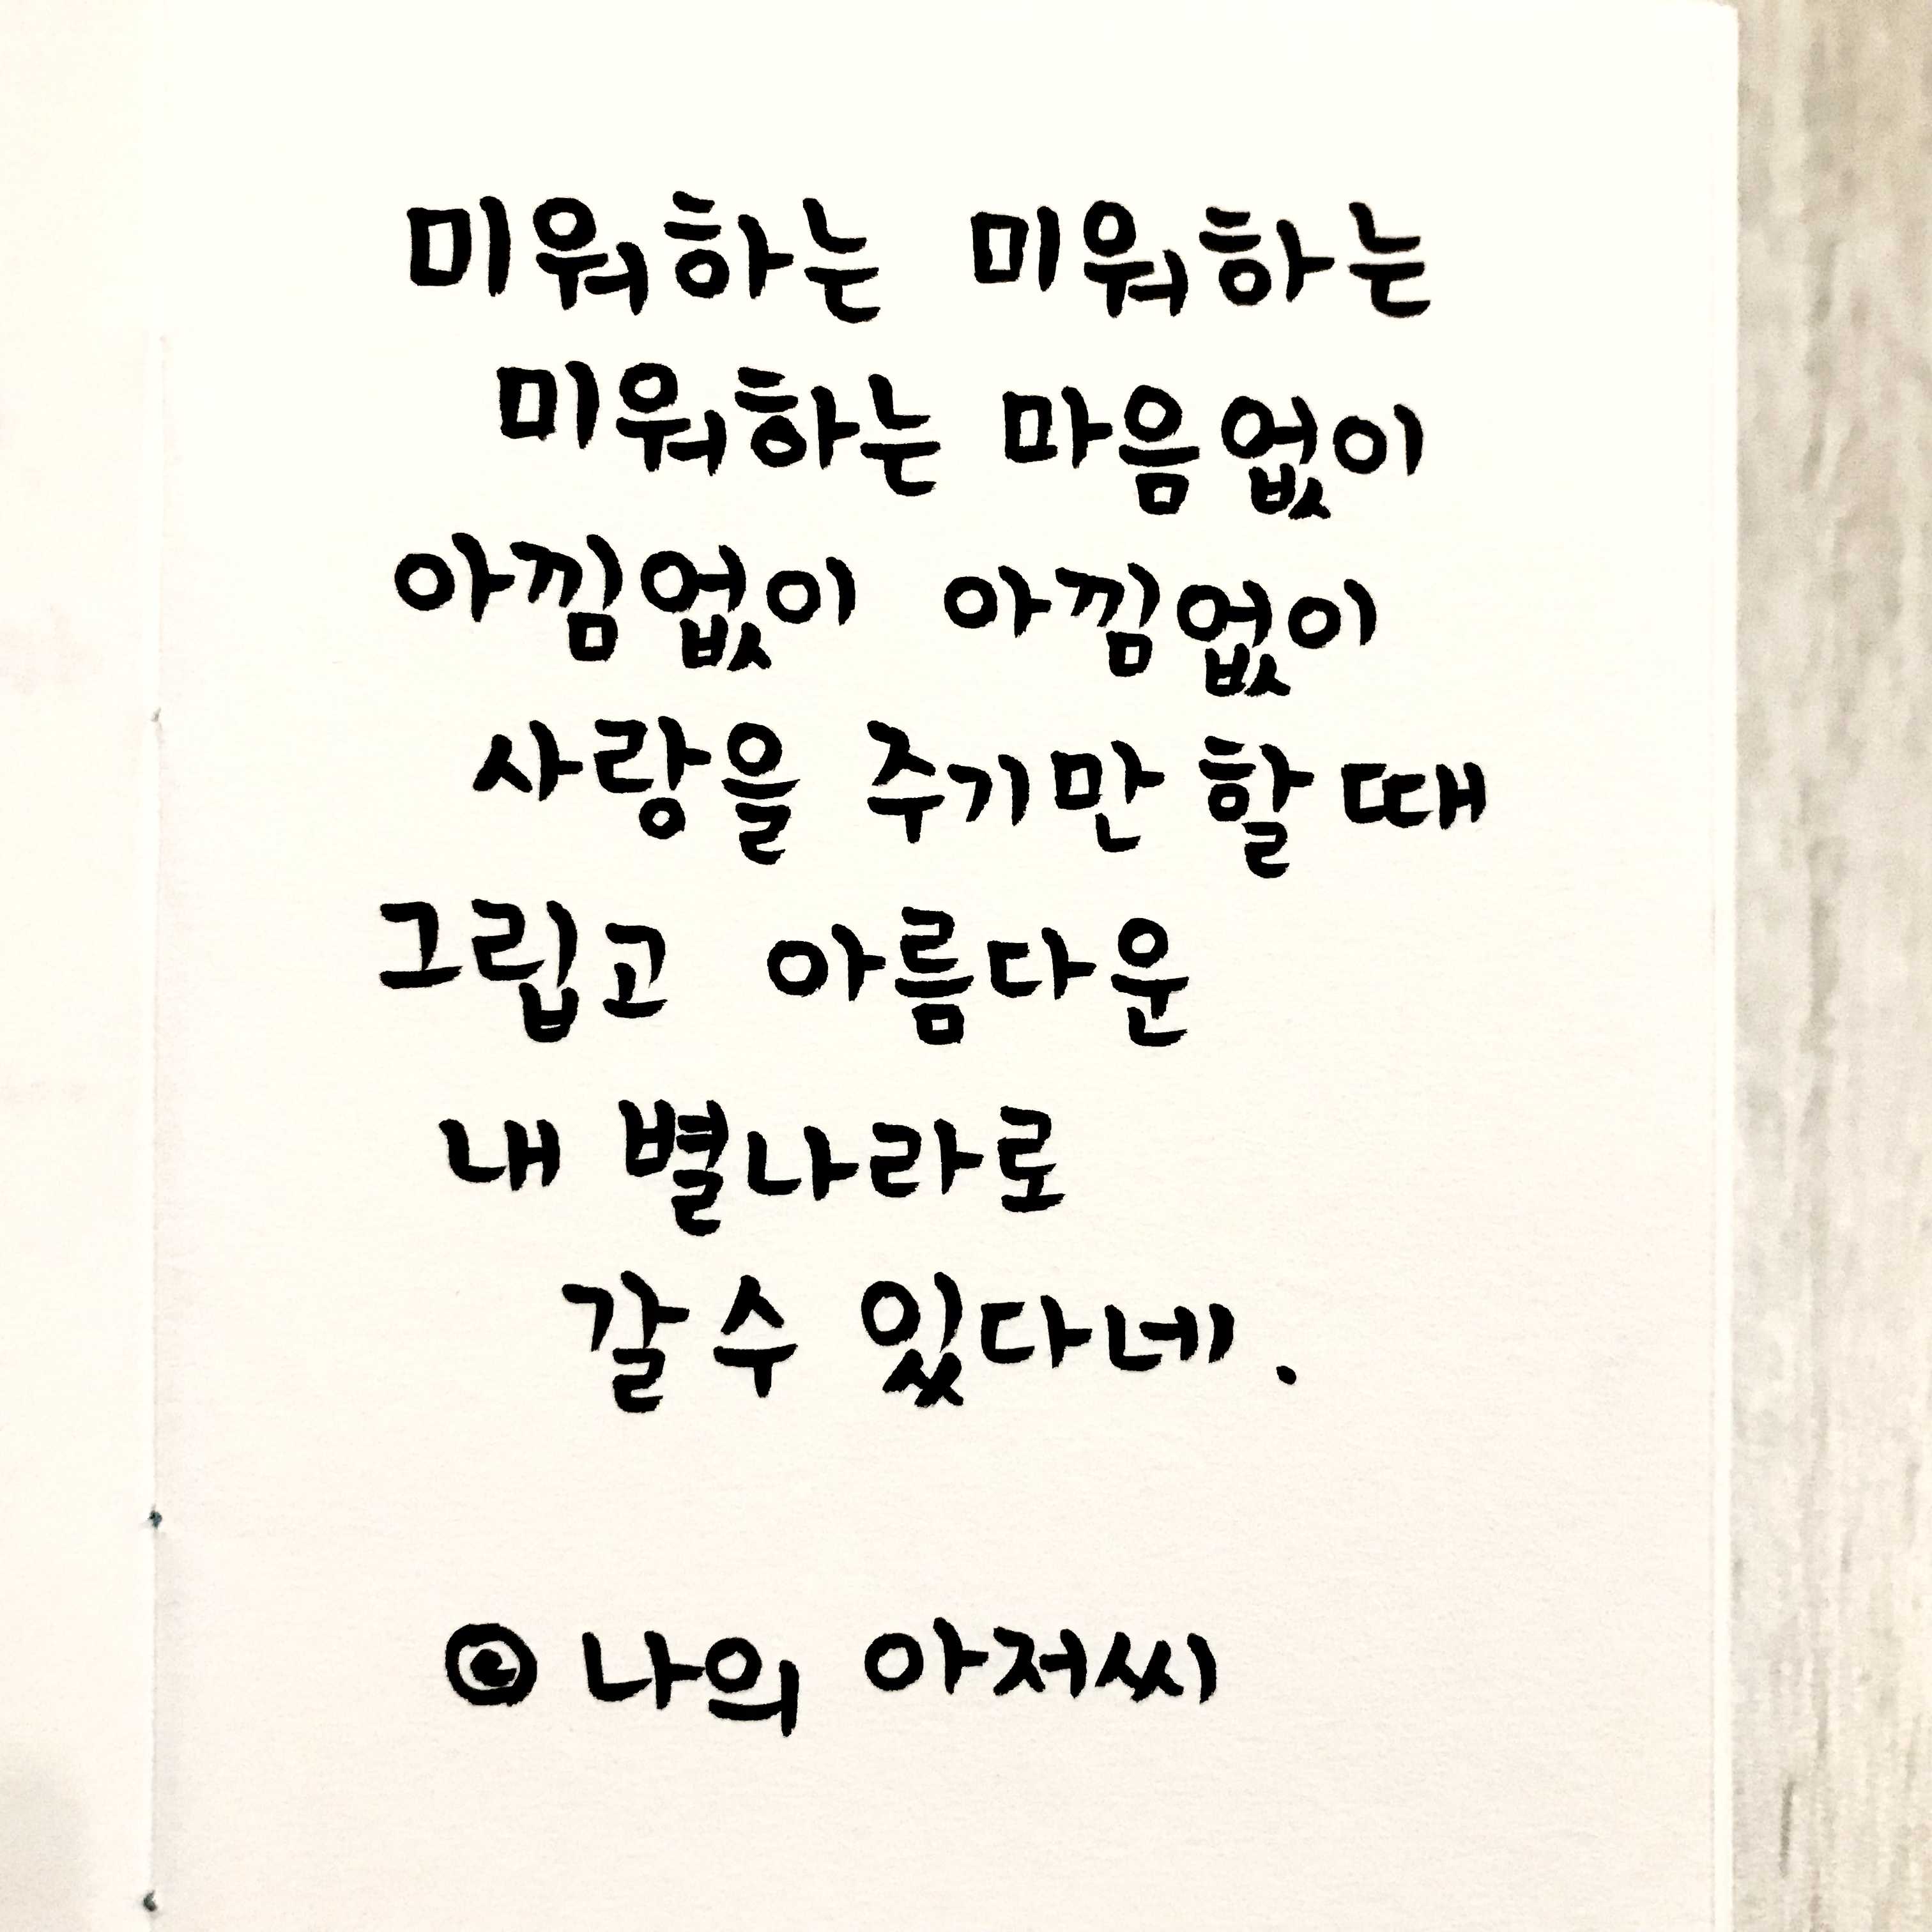 미워하는 미워하는
미워하는 마음없이
아낌없이 아낌없이
사랑을 주기만 할 때
그립고 아름다운
내 별나라로
갈 수 있다네.
◎ 나의 아저씨